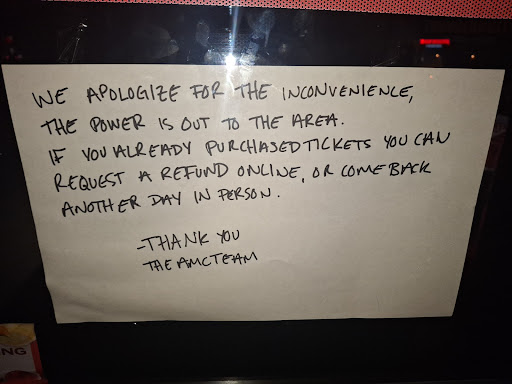 WE APOLOGIZE FOR THE INCONVENIENCE,
THE POWER IS OUT TO THE AREA.
IF YOU ALREADY PURCHASED TICKETS YOU CAN
REQUEST A REFUND ONLINE, OR COME BACK
ANOTHER DAY IN PERSON.
-THANK YOU
THE AMC TEAM
NG